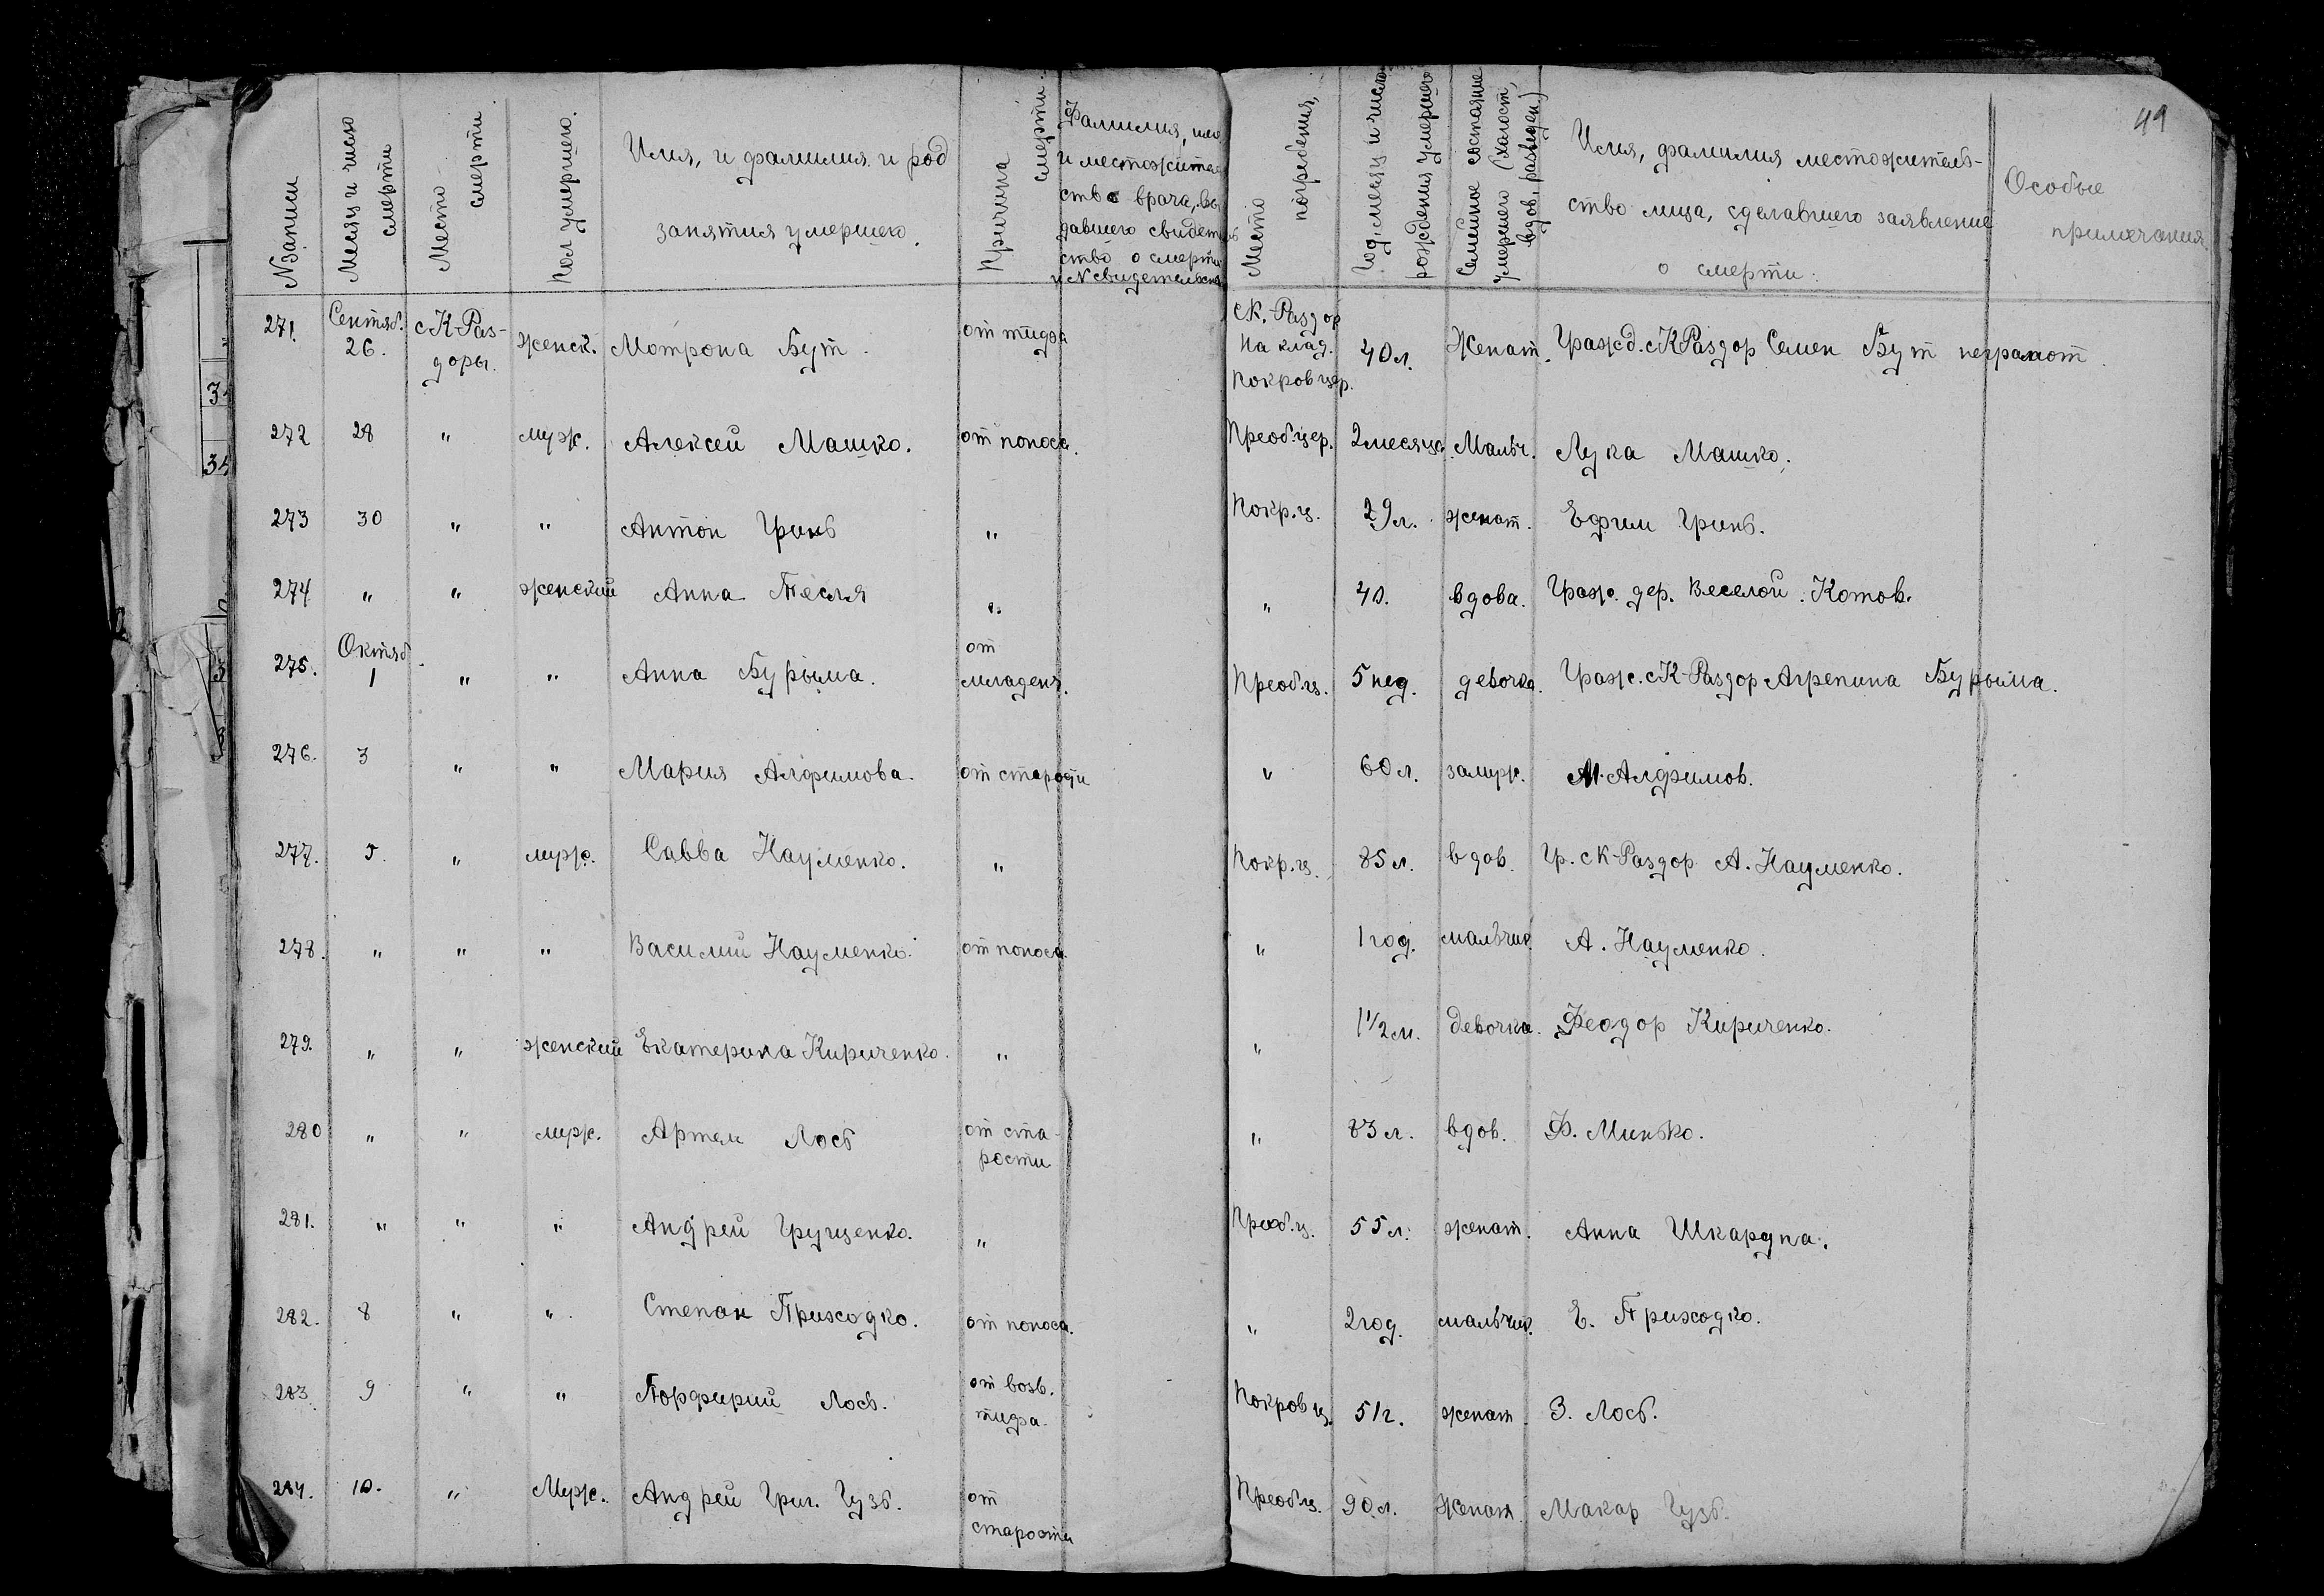 49
№ Записи
Месяц и число смерти
Место смерти
Пол умершего.
Имя, и фамилия и род
занятия умершего.
Причина смерти.
Фамилия, имя
и местожитель
ство врача, вы
давшего свидетель
ство о смерти
и № свидетельства
Место погребения,
Год, месяц и число рождения умершего
Семейное состояние умершего (холост, вдов, разведен)
Имя, фамилия местожитель-
ство лица, сделавшего заявление
о смерти.
Особые
примечания
271. Сентяб. 26. с К-Раздоры. женск. Мотрона Бут. от тифа С К.-Раздор На клад. Покров цер. 40 л. Женат. Гражд. с К Раздор Семен Бут неграмот.
272 28 " муж. Алексей Машко. от поноса. Преоб. цер. 2 месяца. Мальч. Лука Машко.
273 30 " " Антон Гринь " Покр. ц. 29 л. женат. Ефим Гринь.
274 " " женский Анна Тесля " " 40. вдова. Граж. дер. Веселой. Котов.
275. Октяб. 1 " " Анна Бурыма. от младенч. Преоб. ц. 5 нед. девочка. Граж. с К-Раздор Агрепина Бурыма.
276. 3 " " Мария Алфимова. от старости " 60 л. замуж. М. Алфимов.
277. 5. " муж. Савва Науменко. " Покр. ц. 85 л. вдов. Гр. с К-Раздор А. Науменко.
278. " " " Василий Науменко. от поноса. " 1 год. мальчик. А. Науменко.
279. " " женский Екатерина Кириченко. " " 1 1/2 м. девочка. Феодор Кириченко.
280 " " муж. Артем Лось от ста-рости " 83 л. вдов. Ф. Минько.
281. " " " Андрей Грущенко. " Преоб. ц. 55 л. женат. Анна Шкардпа.
282. 8 " " Степан Приходко. от поноса. " 2 год. мальчик. Е. Приходко.
283. 9 " " Порфирий Лось. от возв. тифа. Покров ц. 51 г. женат. З. Лось.
284. 10. " Муж. Андрей Григ. Гузь. от старости Преоб. ц. 90 л. Женат. Макар Гузь.